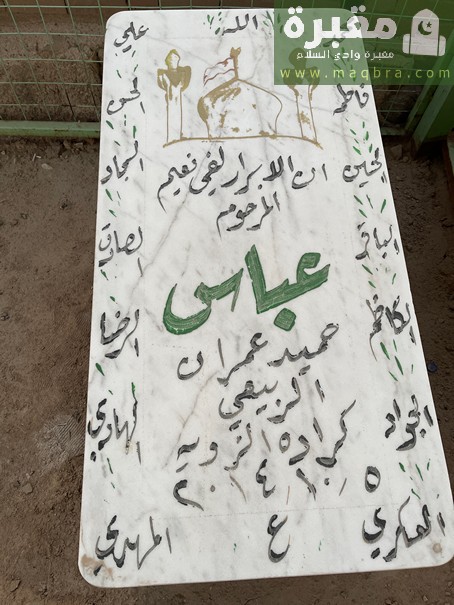 مقبرة
مقبرة وادي السلام
www.maqbra.com
الله
علي
فاطمه
الحسن
الحسين
السجاد
الباقر
الصادق
الكاظم
الرضا
الجواد
الهادي
العسكري
ع
المهدي
ان الابرار لفي نعيم
المرحوم
عباس
حميد عمران
الربيعي
كراده الزويه
٢٠١٤/١٠/٥